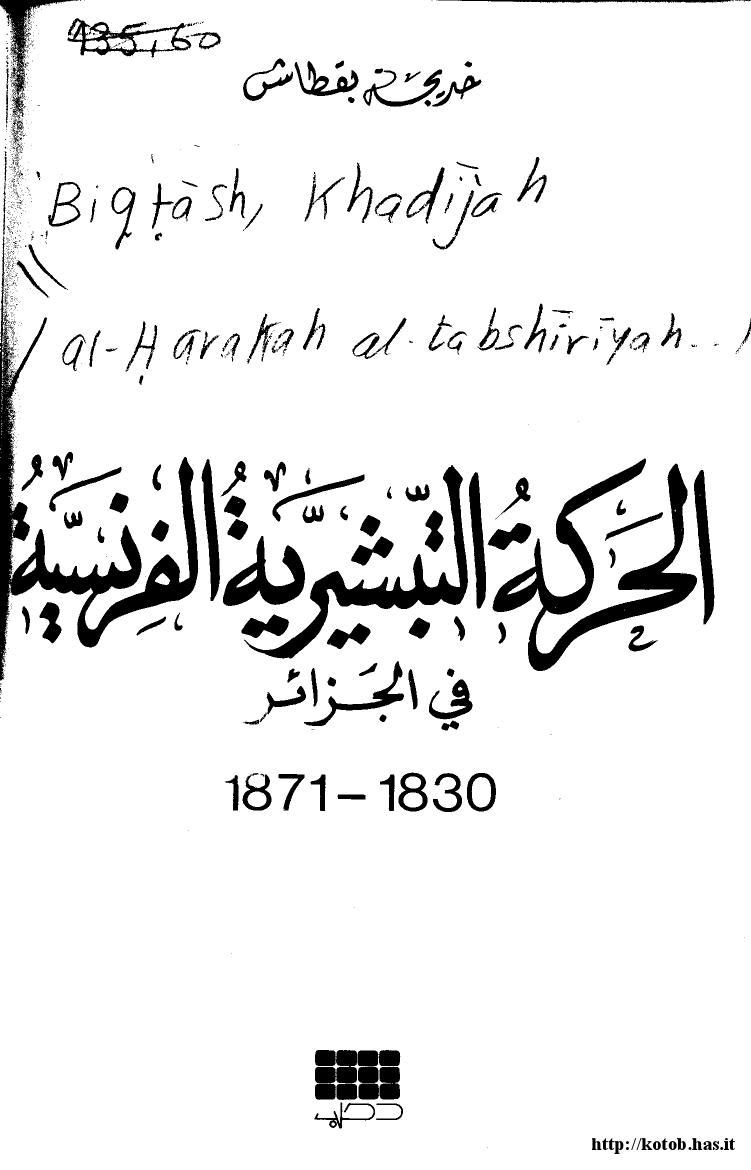 935,60
خديجة بقطاش
Biqṭāsh, Khadījah
/ al-Ḥarakah al-tabshīrīyah.. /
الحَركةُ التّبشيريَّةُ الفرِنسيَّةُ
في الجَزائر
1871–1830
http://kotob.has.it